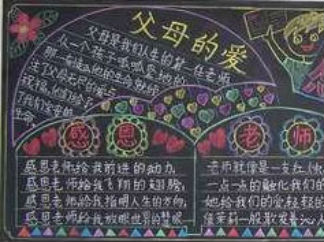 父母的爱
父母是我们人生的第一任老师
从一个孩子呱呱坠地的
感恩
感恩老师给我前进的动力,
感恩老师给我飞翔的翅膀,
感恩老师给我指明人生的方向,
感恩老师给我放眼世界的慧眼
老师
老师就像是一支红烛
一点一点的融化我们的
她给我们的爱轻轻的
像茉莉一般散发着沁人